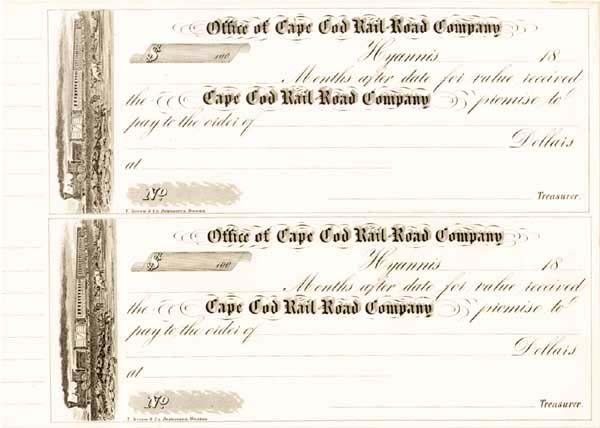 Office of Cape Cod Rail-Road Company
$ 100 Hyannis 18
Months after date for value received
the Cape Cod Rail-Road Company promise to
pay to the order of
Dollars
at
No Treasurer.
Office of Cape Cod Rail-Road Company
$ 100 Hyannis 18
Months after date for value received
the Cape Cod Rail-Road Company promise to
pay to the order of
Dollars
at
No Treasurer.